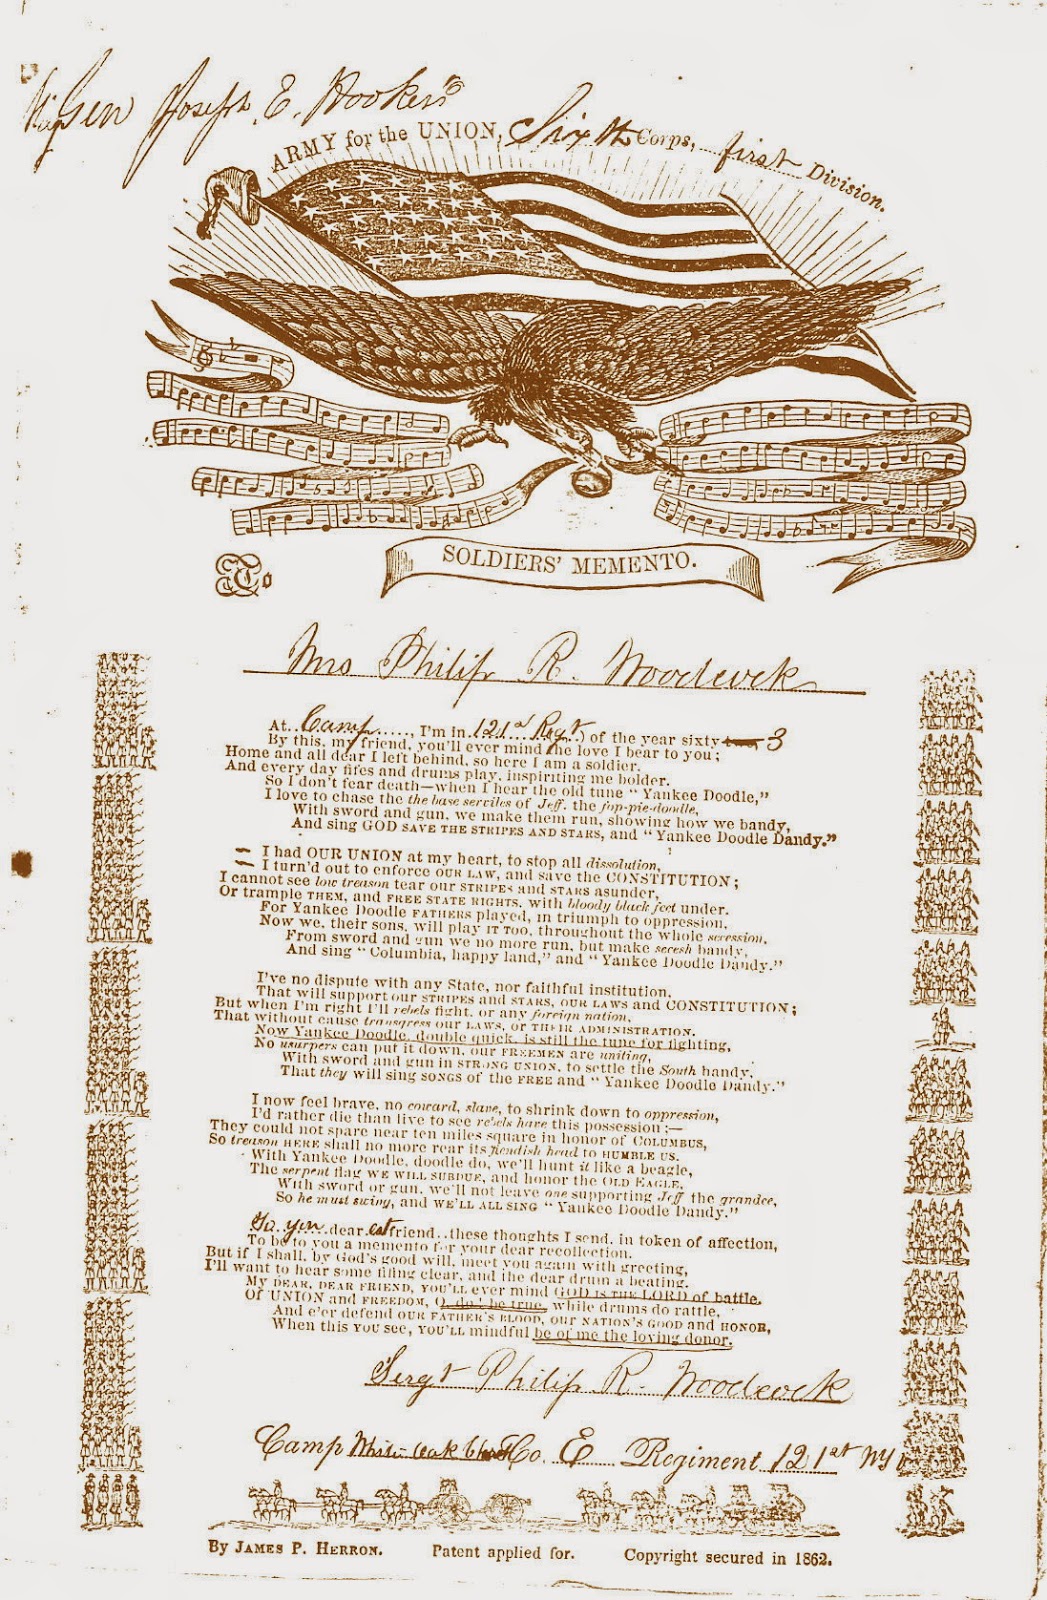 Maj Gen Joseph E. Hooker's
ARMY for the UNION, Sixth Corps, first Division.
SOLDIERS' MEMENTO.
To
Mrs Philip R. Woodcock
At Camp, I'm in 121st Regt, of the year sixty 3
By this, my friend, you'll ever mind the love I bear to you;
Home and all dear I left behind, so here I am a soldier.
And every day fifes and drums play, inspiriting me bolder.
So I don't fear death—when I hear the old tune "Yankee Doodle,"
I love to chase the the base serviles of Jeff. the fop-pie-doodle,
With sword and gun, we make them run, showing how we bandy,
And sing GOD SAVE THE STRIPES AND STARS, and "Yankee Doodle Dandy."
I had OUR UNION at my heart, to stop all dissolution,
I turn'd out to enforce OUR LAW, and save the CONSTITUTION;
I cannot see low treason tear OUR STRIPES and STARS asunder,
Or trample THEM, and FREE STATE RIGHTS, with bloody black feet under.
For Yankee Doodle FATHERS played, in triumph to oppression,
Now we, their sons, will play IT TOO, throughout the whole secession,
From sword and gun we no more run, but make secesh bandy,
And sing "Columbia, happy land," and "Yankee Doodle Dandy."
I've no dispute with any State, nor faithful institution,
That will support our STRIPES and STARS, OUR LAWS and CONSTITUTION;
But when I'm right I'll rebels fight, or any foreign nation,
That without cause transgress OUR LAWS, or THEIR ADMINISTRATION.
Now Yankee Doodle, double quick, is still the tune for fighting,
No usurpers can put it down, OUR FREEMEN are uniting,
With sword and gun in STRONG UNION, to settle the South handy,
That they will sing SONGS of the FREE and "Yankee Doodle Dandy."
I now feel brave, no coward, slave, to shrink down to oppression,
I'd rather die than live to see rebels have this possession;—
They could not spare near ten miles square in honor of COLUMBUS,
So treason HERE shall no more rear its fiendish head to HUMBLE US.
With Yankee Doodle, doodle do, we'll hunt it like a beagle,
The serpent flag WE WILL SUBDUE, and honor the OLD EAGLE,
With sword or gun, we'll not leave one supporting Jeff the grandee,
So he must swing, and WE'LL ALL SING "Yankee Doodle Dandy."
To you dear friend these thoughts I send, in token of affection,
To be to you a memento for your dear recollection.
But if I shall, by God's good will, meet you again with greeting,
I'll want to hear some fifing clear, and the dear drum a beating.
My DEAR, DEAR FRIEND, YOU'LL ever mind GOD IS THE LORD of battle,
Of UNION and FREEDOM, O, do! be true, while drums do rattle,
And e'er defend OUR FATHER'S BLOOD, OUR NATION'S GOOD and HONOR,
When this YOU see, YOU'LL mindful be of me the loving donor.
Sergt Philip R. Woodcock
Camp White oak Church Co. E Regiment 121st NY
By JAMES P. HERRON. Patent applied for. Copyright secured in 1862.